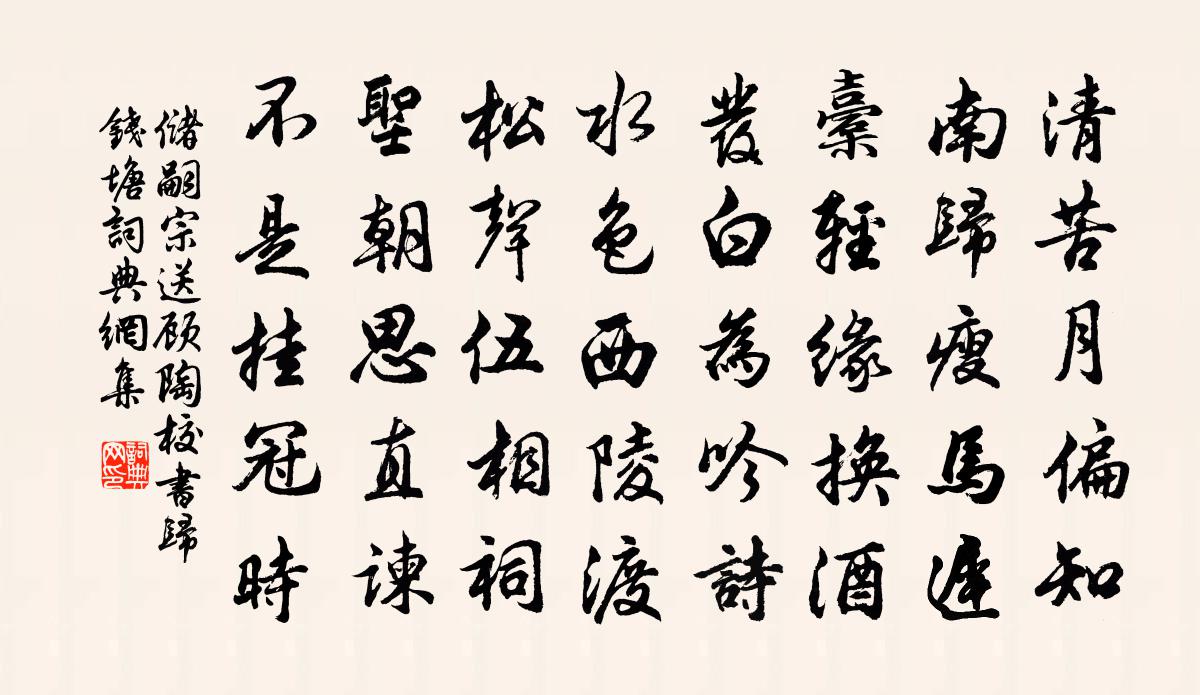 清苦月偏知
南歸瘦馬遲
橐輕緣換酒
髮白為吟詩
水色西陵渡
松聲伍相祠
聖朝思直諫
不是挂冠時
儲嗣宗送顾陶校書歸
錢塘詞典網集
詞典网印